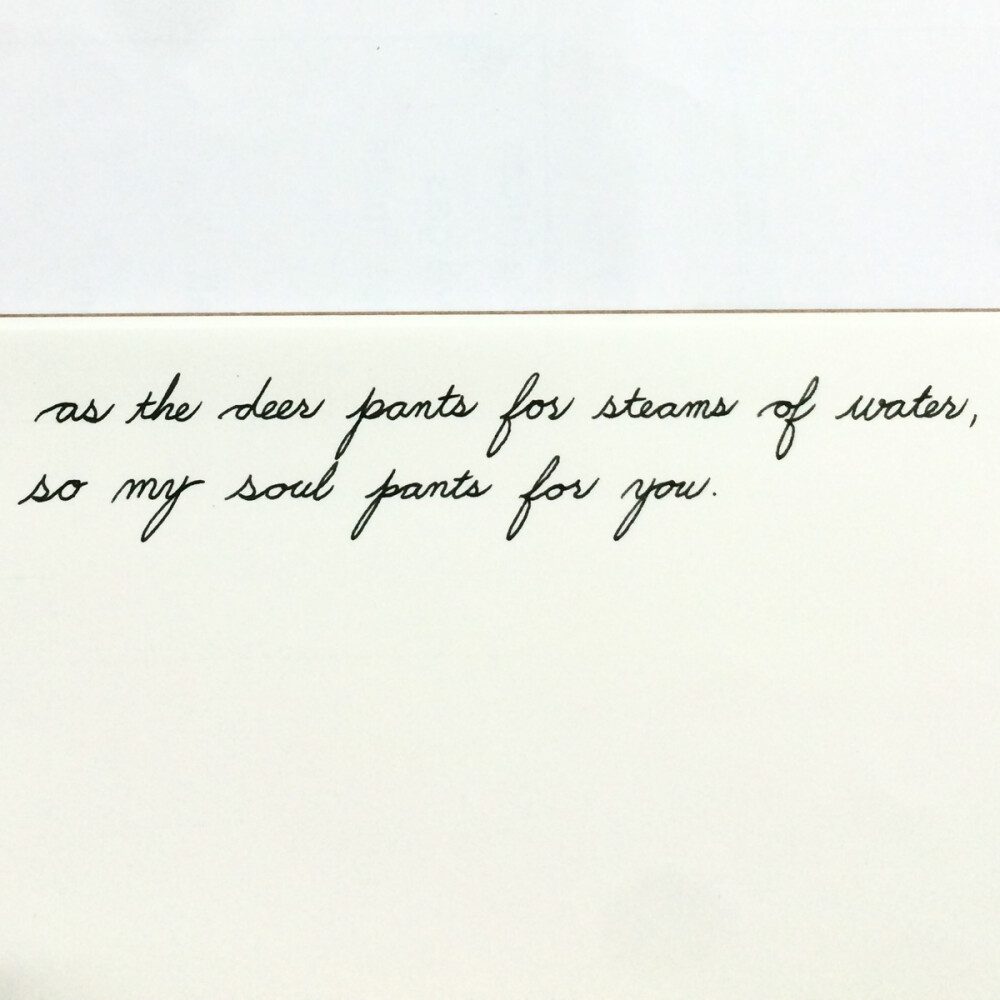 as the deer pants for steams of water,
so my soul pants for you.